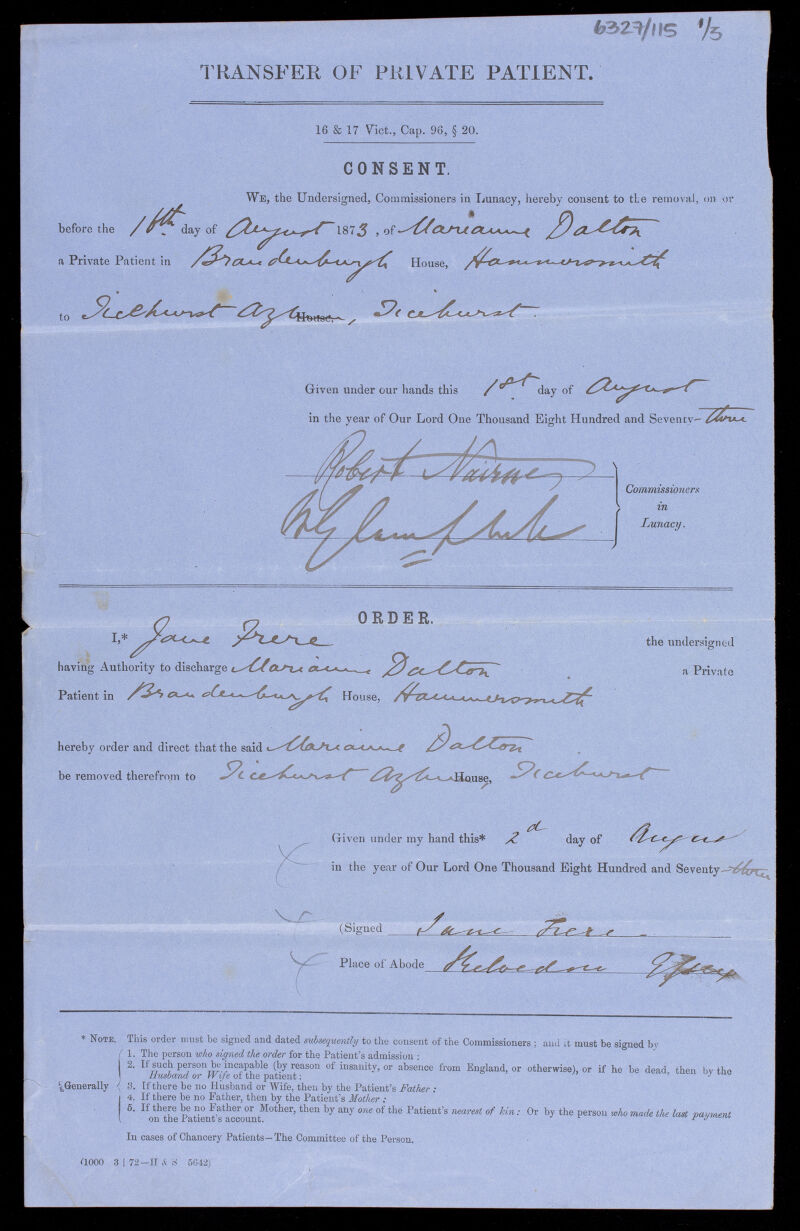 6327/115 1/3
TRANSFER OF PRIVATE PATIENT.
16 & 17 Vict., Cap. 96, § 20.
CONSENT.
WE, the Undersigned, Commissioners in Lunacy, hereby consent to the removal, on or
before the 18th day of August 1873, of Marianne Dalton
a Private Patient in Brandenburgh House, Hammersmith
to Ticehurst House, Ticehurst.
Given under our hands this 1st day of August
in the year of Our Lord One Thousand Eight Hundred and Seventy-three
Robert Nairne
Commissioners
in
Lunacy.
ORDER.
I,* Jane Frere the undersigned
having Authority to discharge Marianne Dalton a Private
Patient in Brandenburgh House, Hammersmith
hereby order and direct that the said Marianne Dalton
be removed therefrom to Ticehurst House, Ticehurst
Given under my hand this* 2d day of August
in the year of Our Lord One Thousand Eight Hundred and Seventy-three
(Signed Jane Frere
Place of Abode Kelvedon Essex
* NOTE. This order must be signed and dated subsequently to the consent of the Commissioners; and it must be signed by
1. The person who signed the order for the Patient's admission:
2. If such person be incapable (by reason of insanity, or absence from England, or otherwise), or if he be dead, then by the
Husband or Wife of the patient:
Generally 3. If there be no Husband or Wife, then by the Patient's Father:
4. If there be no Father, then by the Patient's Mother:
5. If there be no Father or Mother, then by any one of the Patient's nearest of kin: Or by the person who made the last payment
on the Patient's account.
In cases of Chancery Patients—The Committee of the Person.
(1000 3 | 72—H & S 5642)